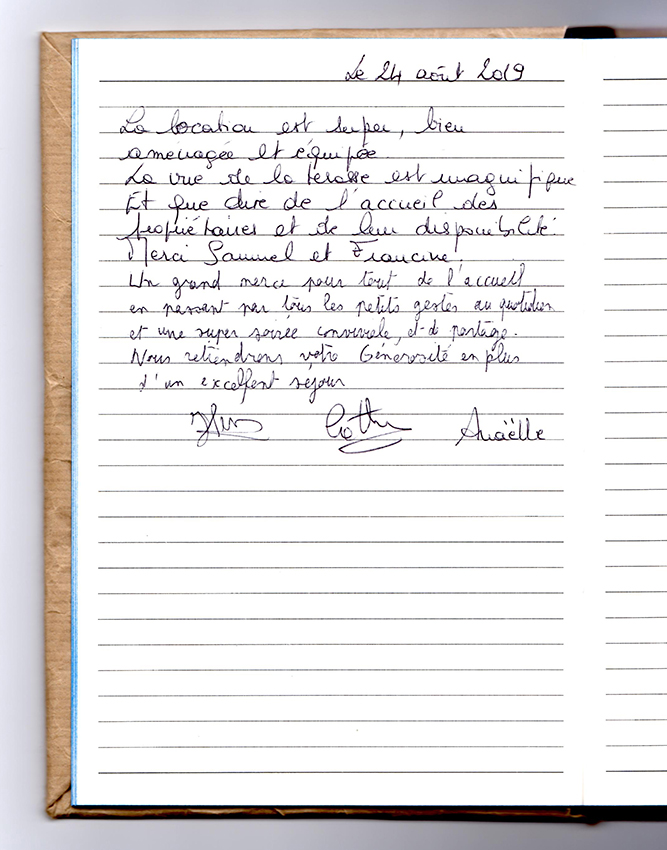 Le 24 août 2019
La location est super, bien
aménagée et équipée.
La vue de la terasse est magnifique
Et que dire de l'accueil des
propriétaires et de leur disponibilité.
Merci Samuel et Francine.
Un grand merci pour tout de l'accueil
en passant par tous les petits gestes au quotidien
et une super soirée conviviale, et de partage.
Nous retiendrons votre Générosité en plus
d'un excellent séjour
Anaëlle